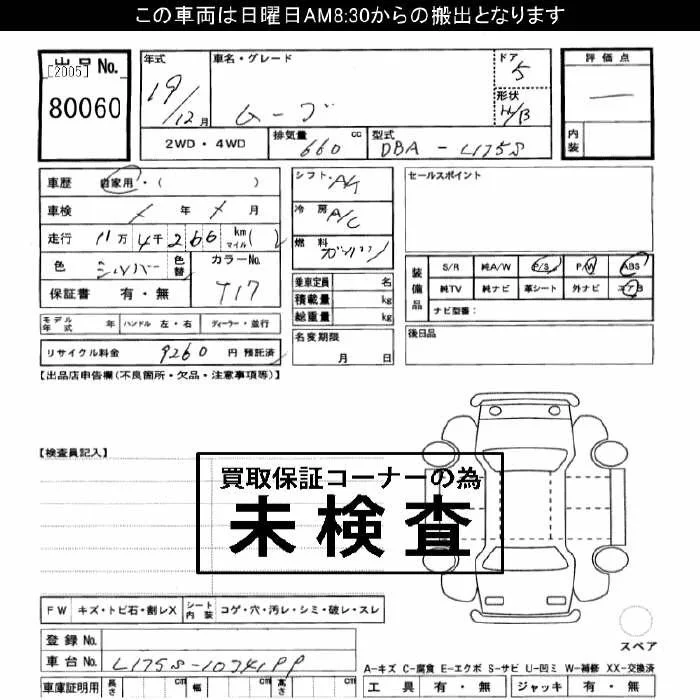 この車両は日曜日AM8:30からの搬出となります
出品No.
[2005]
80060
年式
19/12月
車名・グレード
ムーブ
ドア
5
形状
H/B
評価点
内装
2WD・4WD
排気量 660 cc
型式 DBA-L175S
車歴 自家用・( )
車検 / 年 / 月
走行 11万4千266 km マイル( )
色 シルバー 色替 カラーNo. T17
保証書 有・無
シフト A/T
冷房 A/C
燃料 ガソリン
乗車定員 名
積載量 kg
総重量 kg
名変期限
月 日
セールスポイント
装備品
S/R 純A/W P/S P/W ABS
純TV 純ナビ 革シート 外ナビ エアB
ナビ型番:
後日品
モデル年式 年 ハンドル 左・右 ディーラー・並行
リサイクル料金 9260 円 預託済
【出品店申告欄(不良箇所・欠品・注意事項等)】
【検査員記入】
買取保証コーナーの為
未検査
FW キズ・トビ石・割レX シート内装 コゲ・穴・汚レ・シミ・破レ・スレ
登録No.
車台No.
スペア
A-キズ C-腐食 E-エクボ S-サビ U-凹ミ W-補修 XX-交換済
車庫証明用 長さ cm 幅 cm 高さ cm
工具 有・無 ジャッキ 有・無